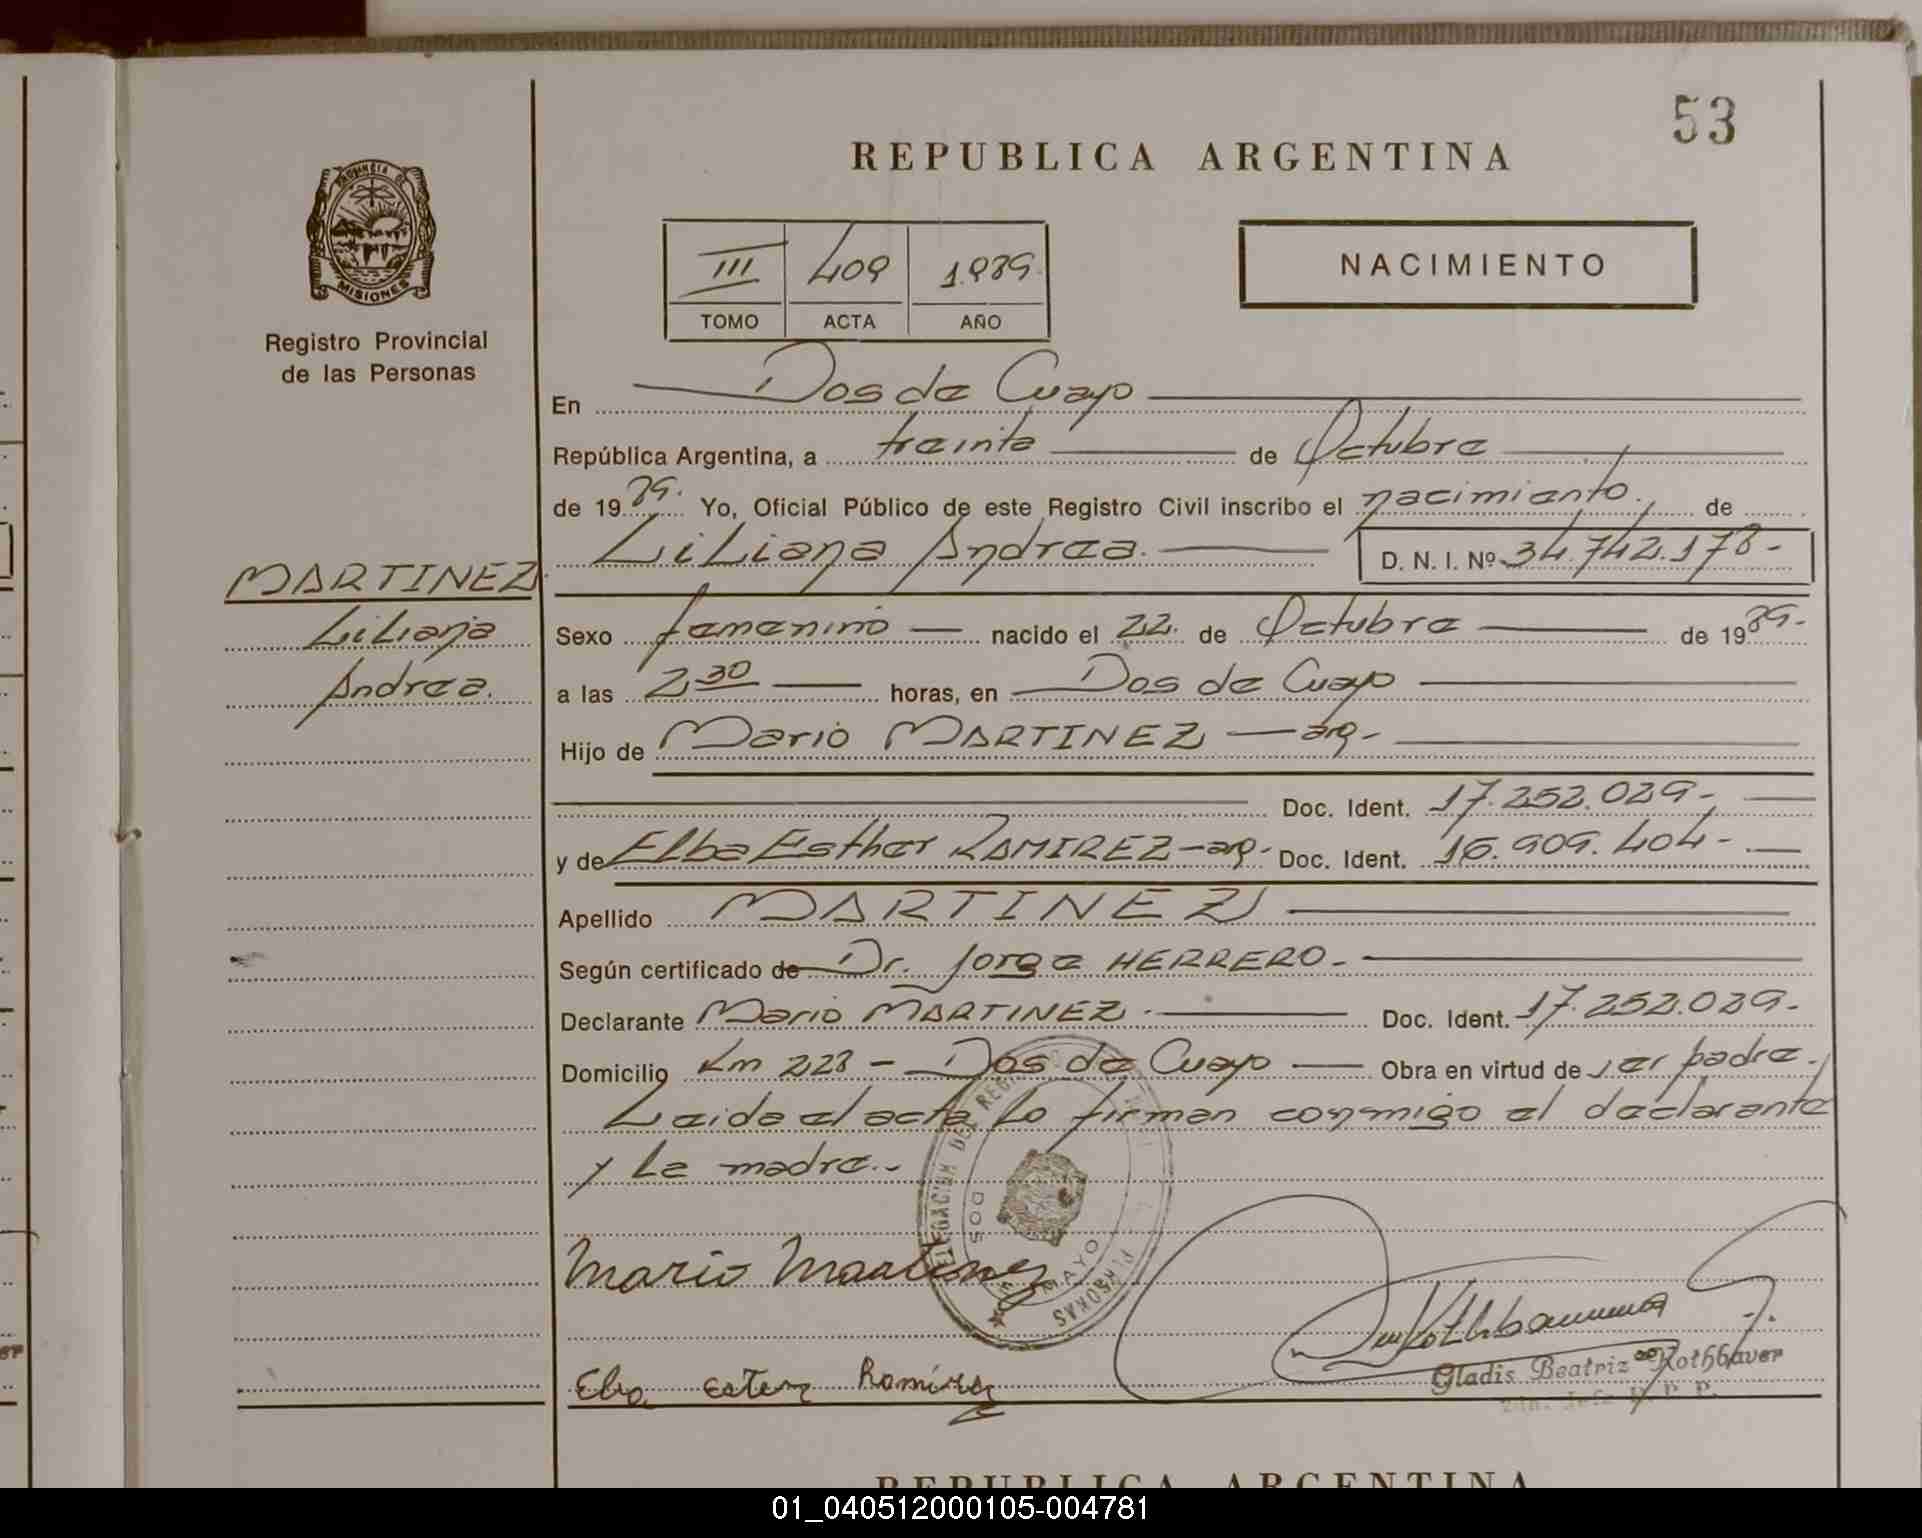 53
REPUBLICA ARGENTINA
PROVINCIA DE
MISIONES
Registro Provincial
de las Personas
III 409 1.989.
TOMO ACTA AÑO
NACIMIENTO
En Dos de Mayo
República Argentina, a treinta de Octubre
de 19 89. Yo, Oficial Público de este Registro Civil inscribo el nacimiento. de
Liliana Andrea. D. N. I. Nº 34.742.178-
MARTINEZ
Liliana
Andrea.
Sexo femenino nacido el 22. de Octubre de 19 89-
a las 2,30 horas, en Dos de Mayo
Hijo de Mario MARTINEZ - arg-
Doc. Ident. 17.252.029-
y de Elba Esther RAMIREZ - arg- Doc. Ident. 16.909.404-
Apellido MARTINEZ
Según certificado de Dr. Jorge HERRERO-
Declarante Mario MARTINEZ. Doc. Ident. 17.252.029-
Domicilio Km 228 - Dos de Mayo Obra en virtud de ser padre.
Leida el acta Lo firman conmigo el declarante
y La madre.-
DELEGACION DEL REGISTRO
PERSONAS
DOS
MAYO
Mario Martinez
Elva ester Ramirez
Gladis Beatriz Rothbaver
REPUBLICA ARGENTINA
01_040512000105-004781